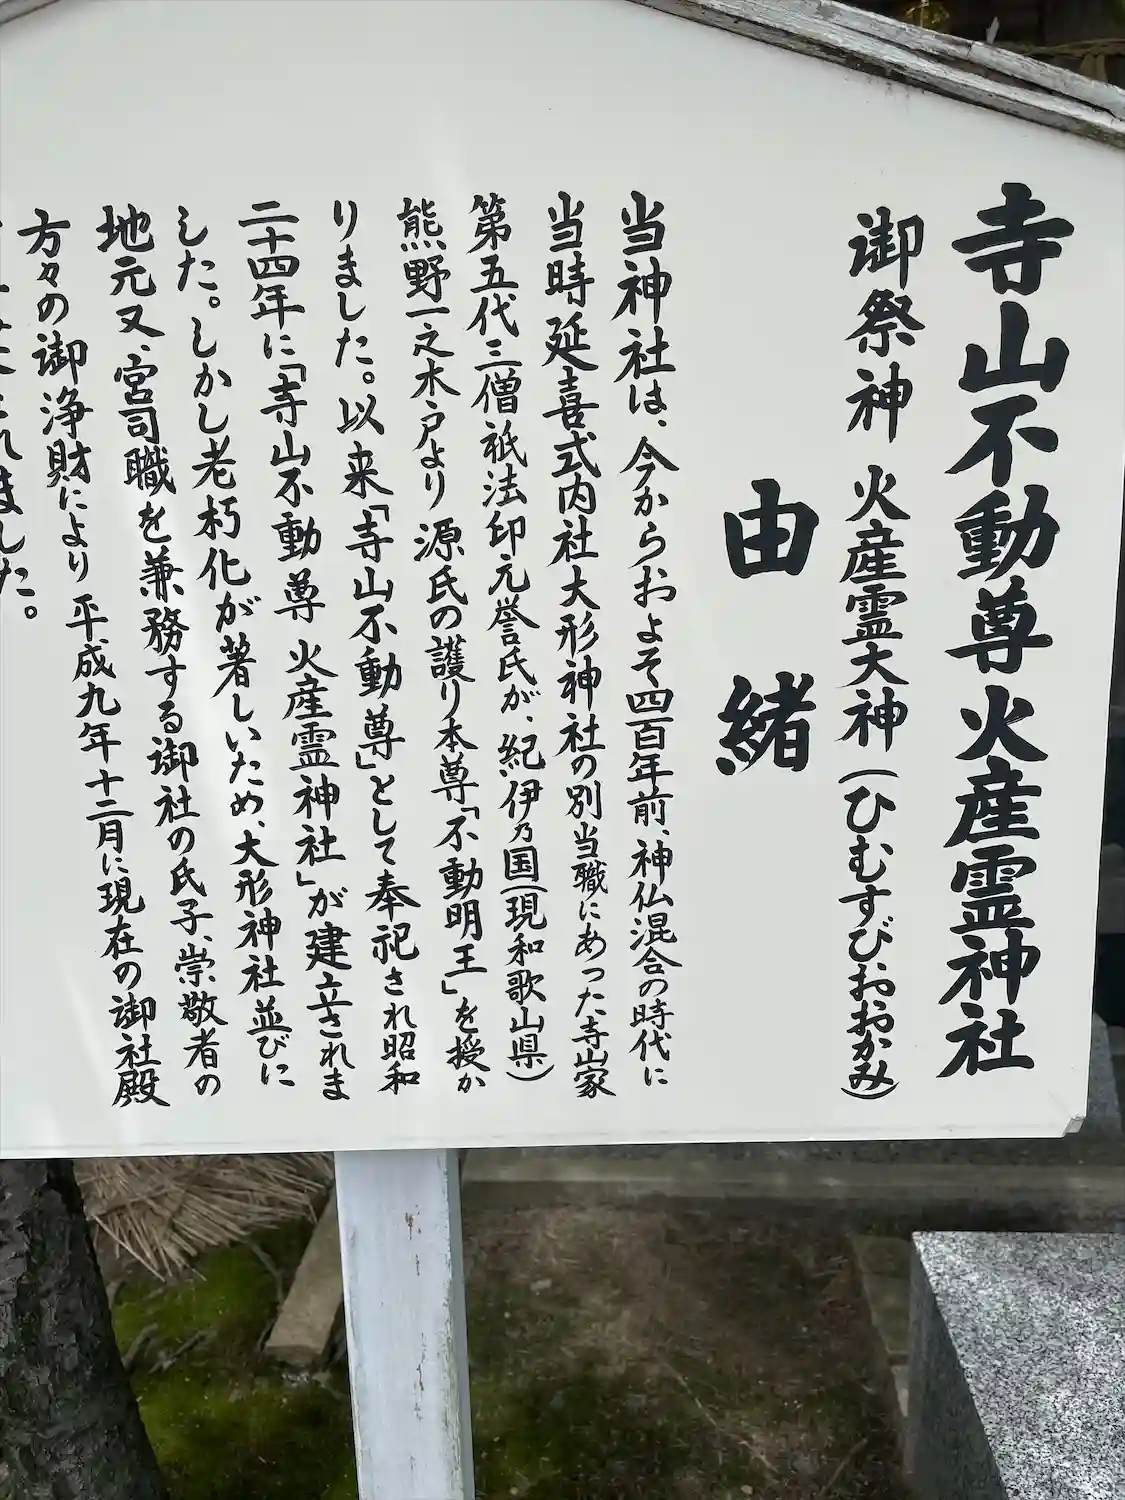 寺山不動尊火産霊神社
御祭神 火産霊大神(ひむすびおおかみ)
由緒
当神社は、今からおよそ四百年前、神仏混合の時代に
当時延喜式内社大形神社の別当職にあった寺山家
第五代三僧祇法印元誉氏が、紀伊乃国(現和歌山県)
熊野一之木戸より源氏の護り本尊「不動明王」を授か
りました。以来「寺山不動尊」として奉祀され昭和
二十四年に「寺山不動尊火産霊神社」が建立されま
した。しかし老朽化が著しいため、大形神社並びに
地元又、宮司職を兼務する御社の氏子、崇敬者の
方々の御浄財により平成九年十二月に現在の御社殿
れました。